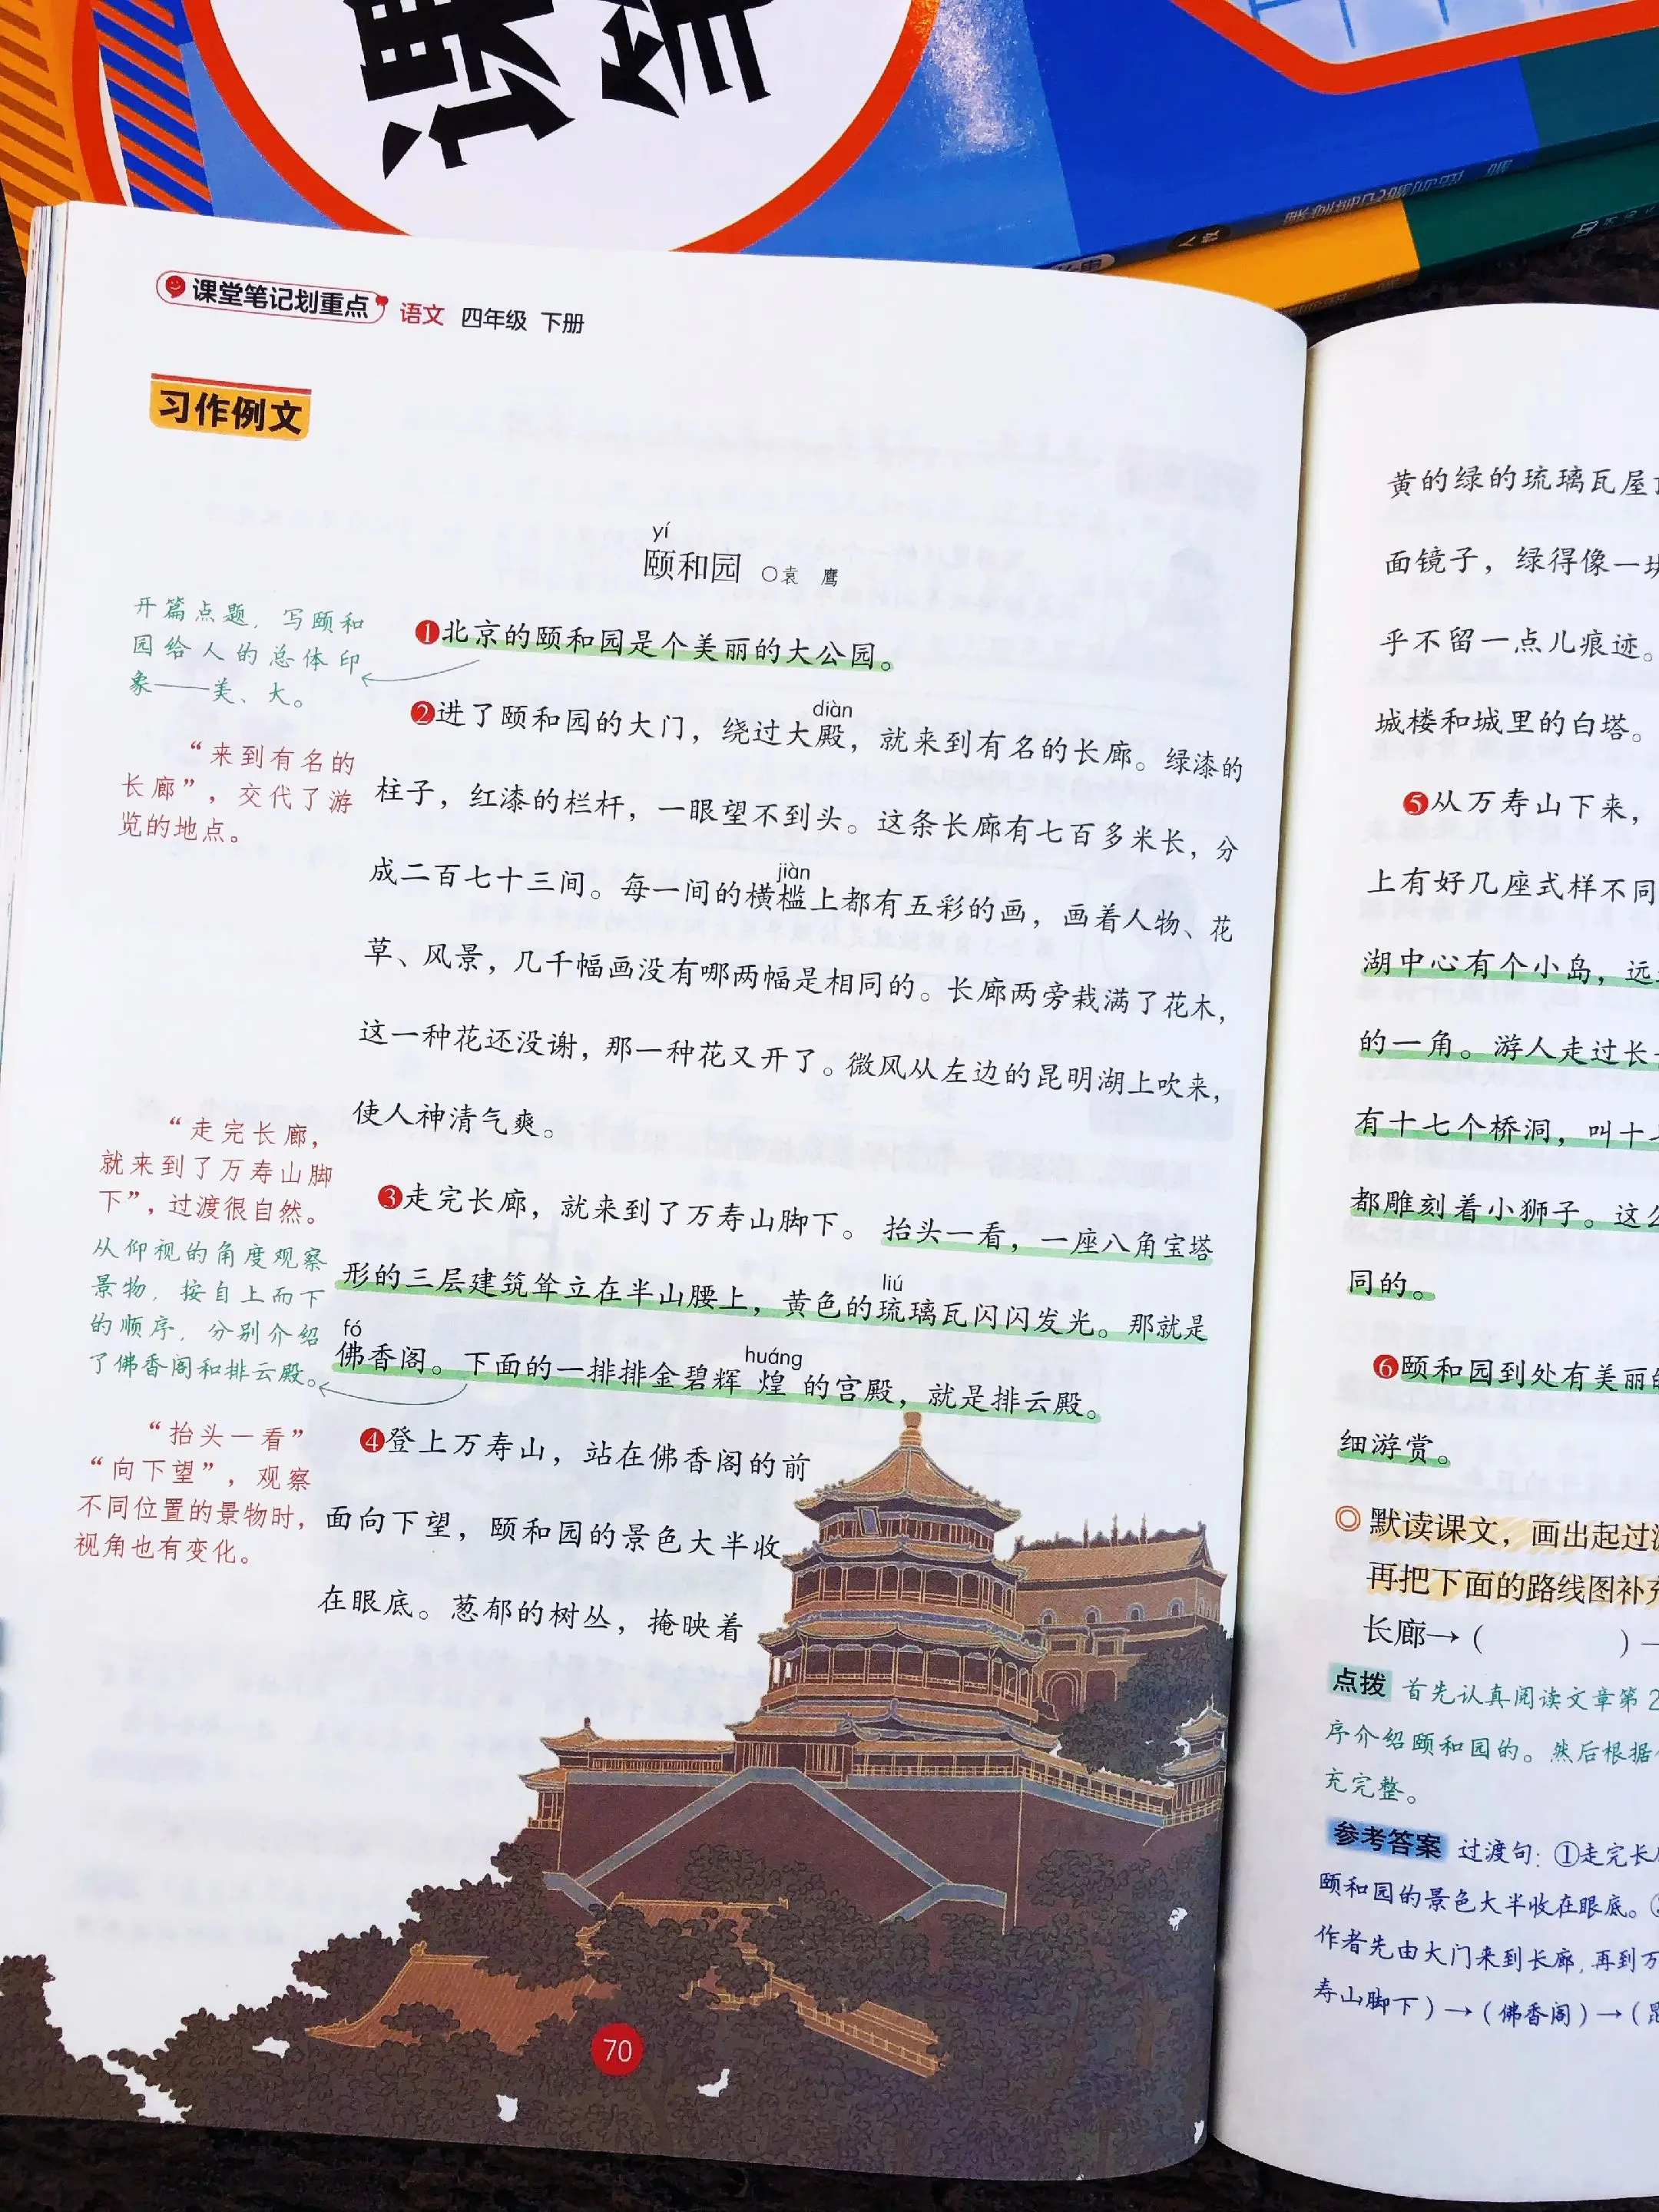 课堂
课堂笔记划重点 语文 四年级 下册
习作例文
yí
颐和园 ○袁 鹰
开篇点题，写颐和
园给人的总体印
象——美、大。
❶北京的颐和园是个美丽的大公园。
diàn
❷进了颐和园的大门，绕过大殿，就来到有名的长廊。绿漆的
“来到有名的
长廊”，交代了游
览的地点。
柱子，红漆的栏杆，一眼望不到头。这条长廊有七百多米长，分
jiàn
成二百七十三间。每一间的横槛上都有五彩的画，画着人物、花
草、风景，几千幅画没有哪两幅是相同的。长廊两旁栽满了花木，
这一种花还没谢，那一种花又开了。微风从左边的昆明湖上吹来，
使人神清气爽。
“走完长廊，
就来到了万寿山脚
下”，过渡很自然。
❸走完长廊，就来到了万寿山脚下。抬头一看，一座八角宝塔
liú
形的三层建筑耸立在半山腰上，黄色的琉璃瓦闪闪发光。那就是
fó huáng
佛香阁。下面的一排排金碧辉煌的宫殿，就是排云殿。
从仰视的角度观察
景物，按自上而下
的顺序，分别介绍
了佛香阁和排云殿。
“抬头一看”
“向下望”，观察
不同位置的景物时，
视角也有变化。
❹登上万寿山，站在佛香阁的前
面向下望，颐和园的景色大半收
在眼底。葱郁的树丛，掩映着
70
黄的绿的琉璃瓦屋
面镜子，绿得像一块
乎不留一点儿痕迹。
城楼和城里的白塔。
❺从万寿山下来，
上有好几座式样不同
湖中心有个小岛，远
的一角。游人走过长
有十七个桥洞，叫十
都雕刻着小狮子。这么
同的。
❻颐和园到处有美丽的
细游赏。
◎默读课文，画出起过
再把下面的路线图补充
长廊→（ ）
点拨 首先认真阅读文章第2
序介绍颐和园的。然后根据
充完整。
参考答案 过渡句：①走完长
颐和园的景色大半收在眼底。
作者先由大门来到长廊，再到万
寿山脚下）→（佛香阁）→（